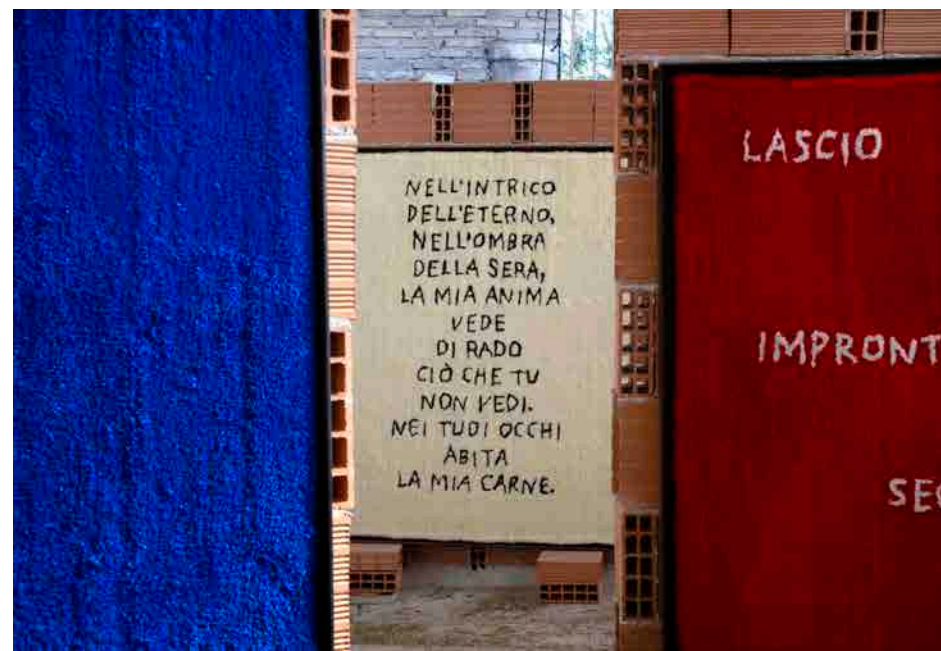 NELL'INTRICO
DELL'ETERNO,
NELL'OMBRA
DELLA SERA,
LA MIA ANIMA
VEDE
DI RADO
CIÒ CHE TU
NON VEDI.
NEI TUOI OCCHI
ABITA
LA MIA CARNE.
LASCIO
IMPRONT